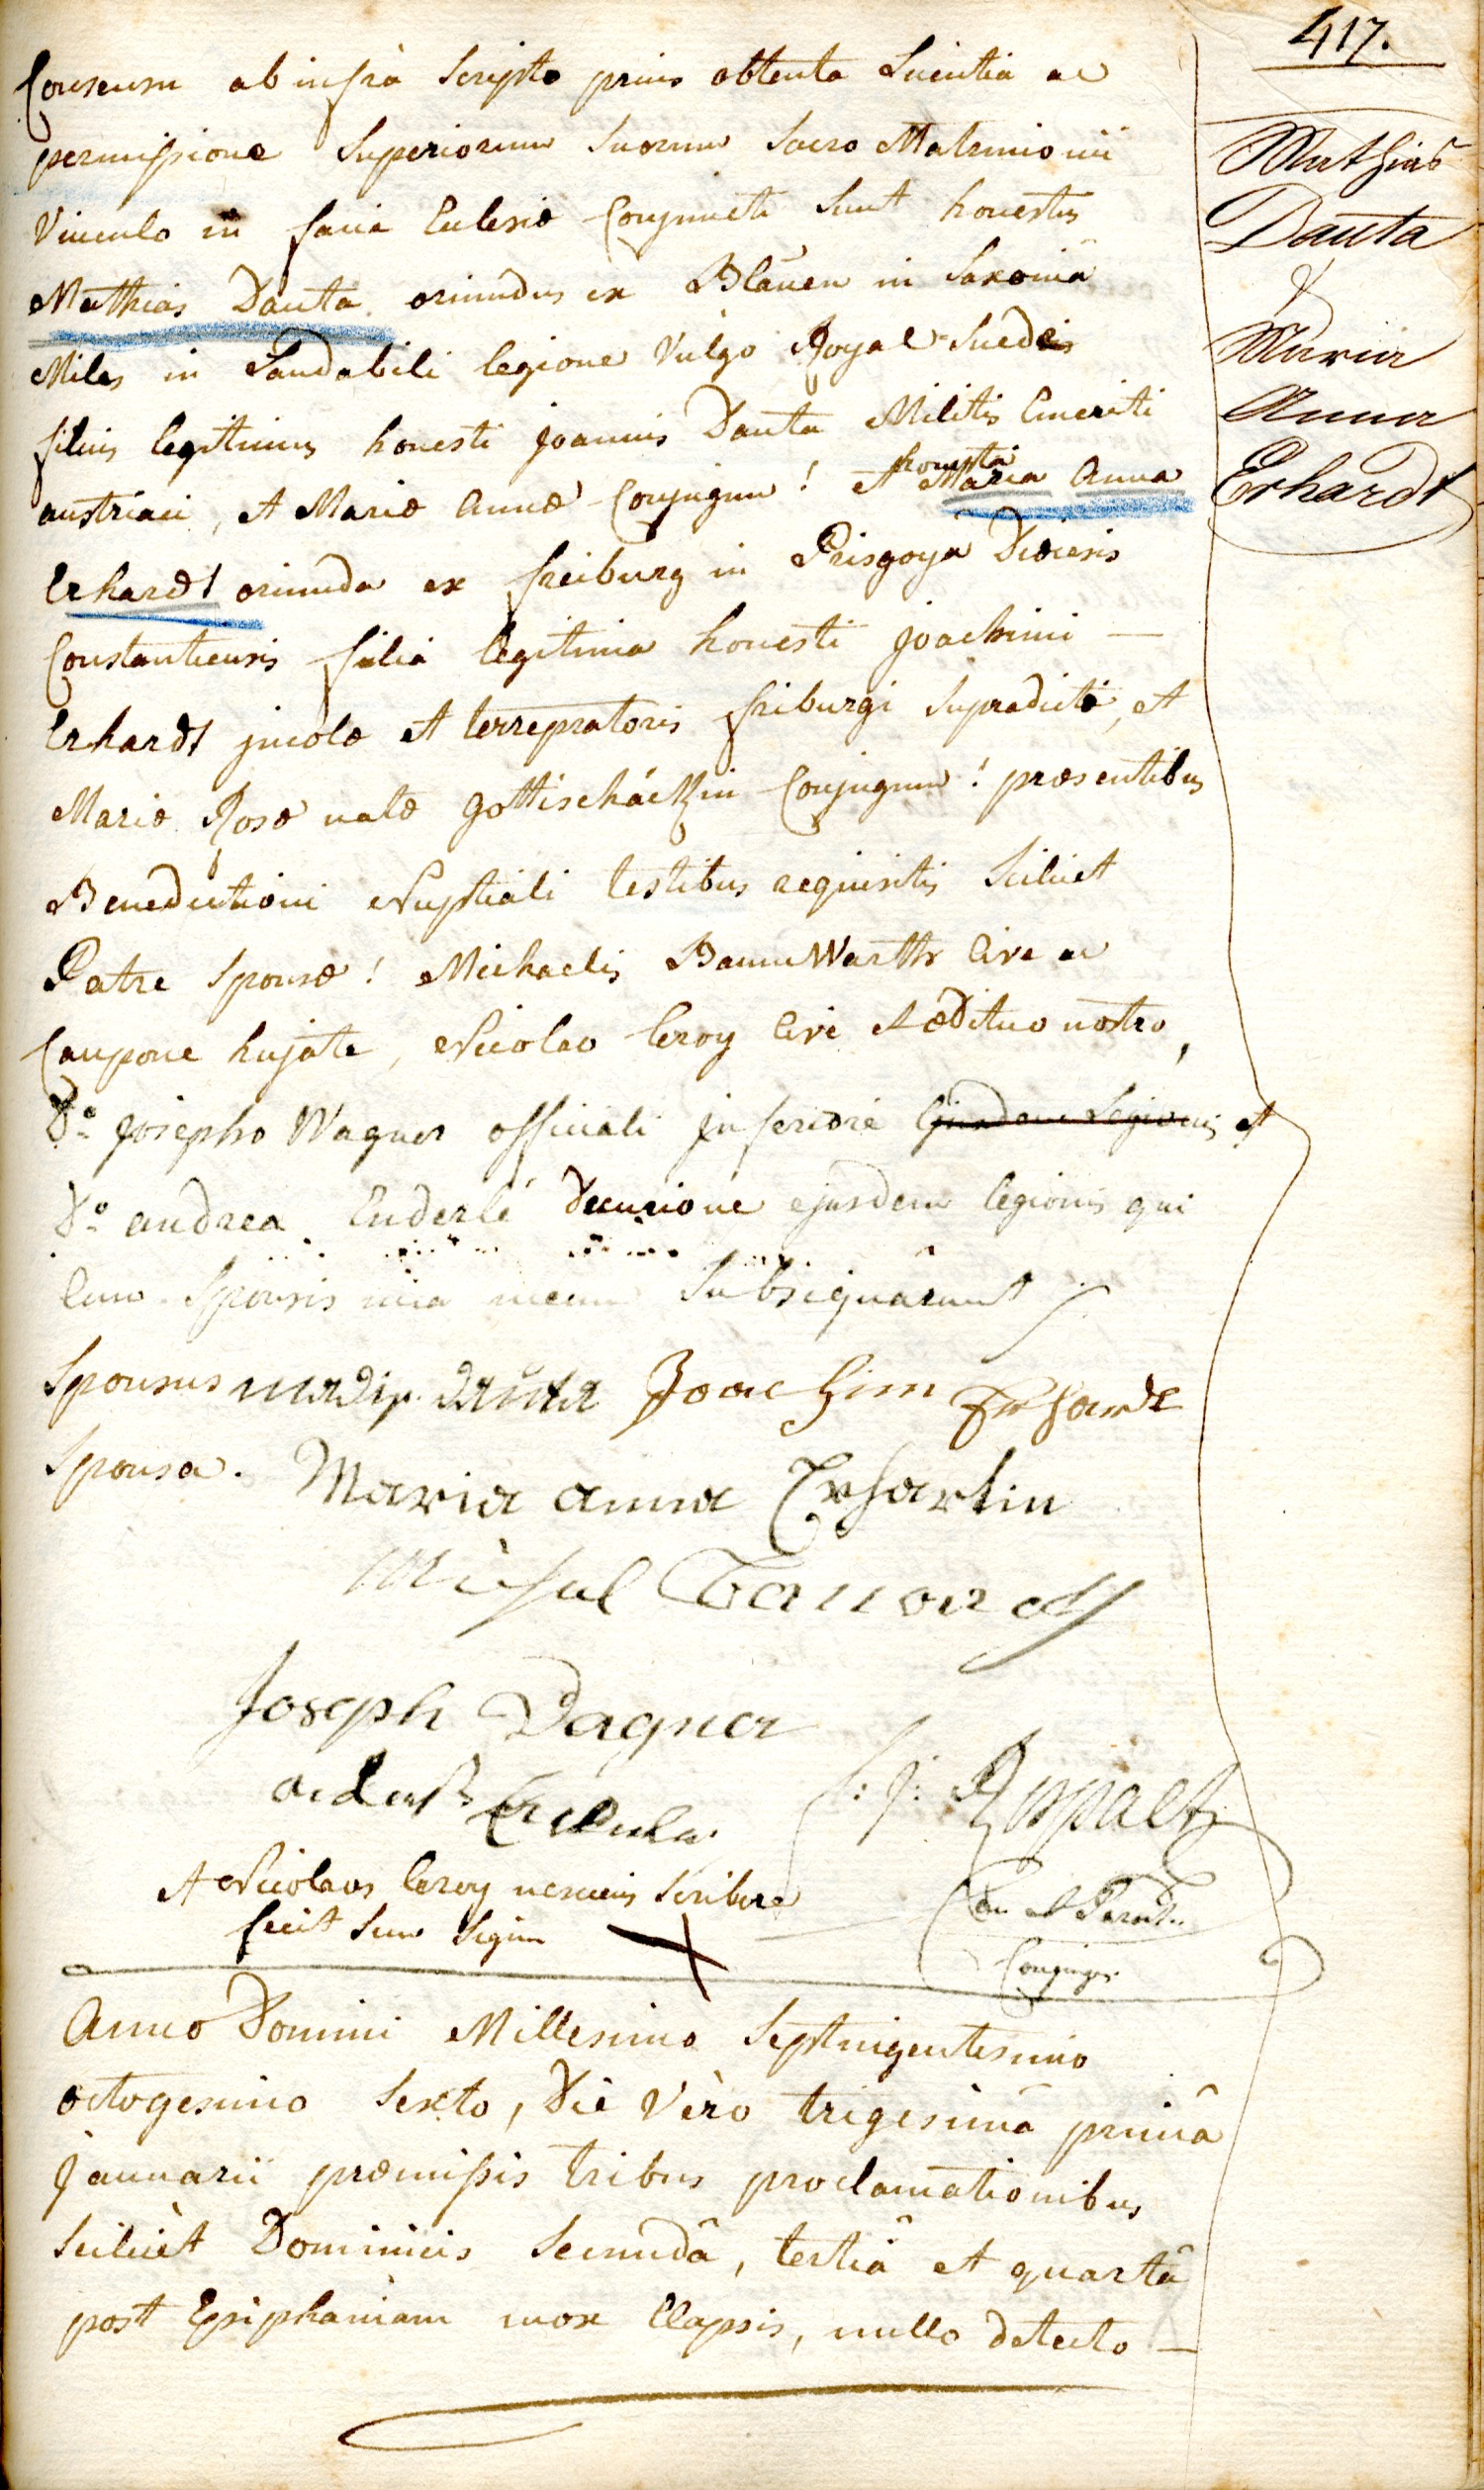 417.
Consensu ab infrà Scripto prius obtenta Licentia ac
permissione Superiorum Suorum Sacro Matrimonii
Vinculo in facie Eclesiæ Conjuncti Sunt honestus
Mathias Dauta oriundus ex Blauen in Saxoniâ
Miles in Laudabili legione Vulgo Royal-Suedois
filius legitimus honesti joannis Dauta Militis Emeriti
austriaci, et Mariæ Annæ Conjugum! et honesta Maria Anna
Erhardt oriunda ex freiburg in Prisgoya Diœcesis
Constantiensis filia legitima honesti joachimi —
Erhardt jncolæ et terrepratoris friburgi Supradicti, et
Mariæ Rosæ natæ gottischäckin Conjugum! præsentibus
Benedictioni Nuptiali testibus requisitis Scilicet
Patre Sponsæ! Michaelis BannWarth Cive ac
Caupone hujate, Nicolao leroy Cive Ædituo nostro,
D.º Josepho Wagner officiali jnferiore Ejusdem Legionis et
D.º andrea Enderlé Decurione ejusdem legionis qui
Cum Sponsis una mecum Subsignârunt
Sponsus madis dauta Joachim Erhardt
Sponsa. Maria anna Erhartin
Michel
Joseph Wagner
et Nicolaus leroy nesciens Scribere
fecit Suum Signum
Anno Domini Millesimo Septuigentesimo
octogesimo Sexto, Die Vèro trigesimâ primâ
Januarii præmissis tribus proclamationibus
Scilicèt Dominicis Secundâ, tertiâ et quartâ
post Epiphaniam mox Elapsis, nullo detecto —
Mathias
Dauta
&
Maria
Anna
Erhardt